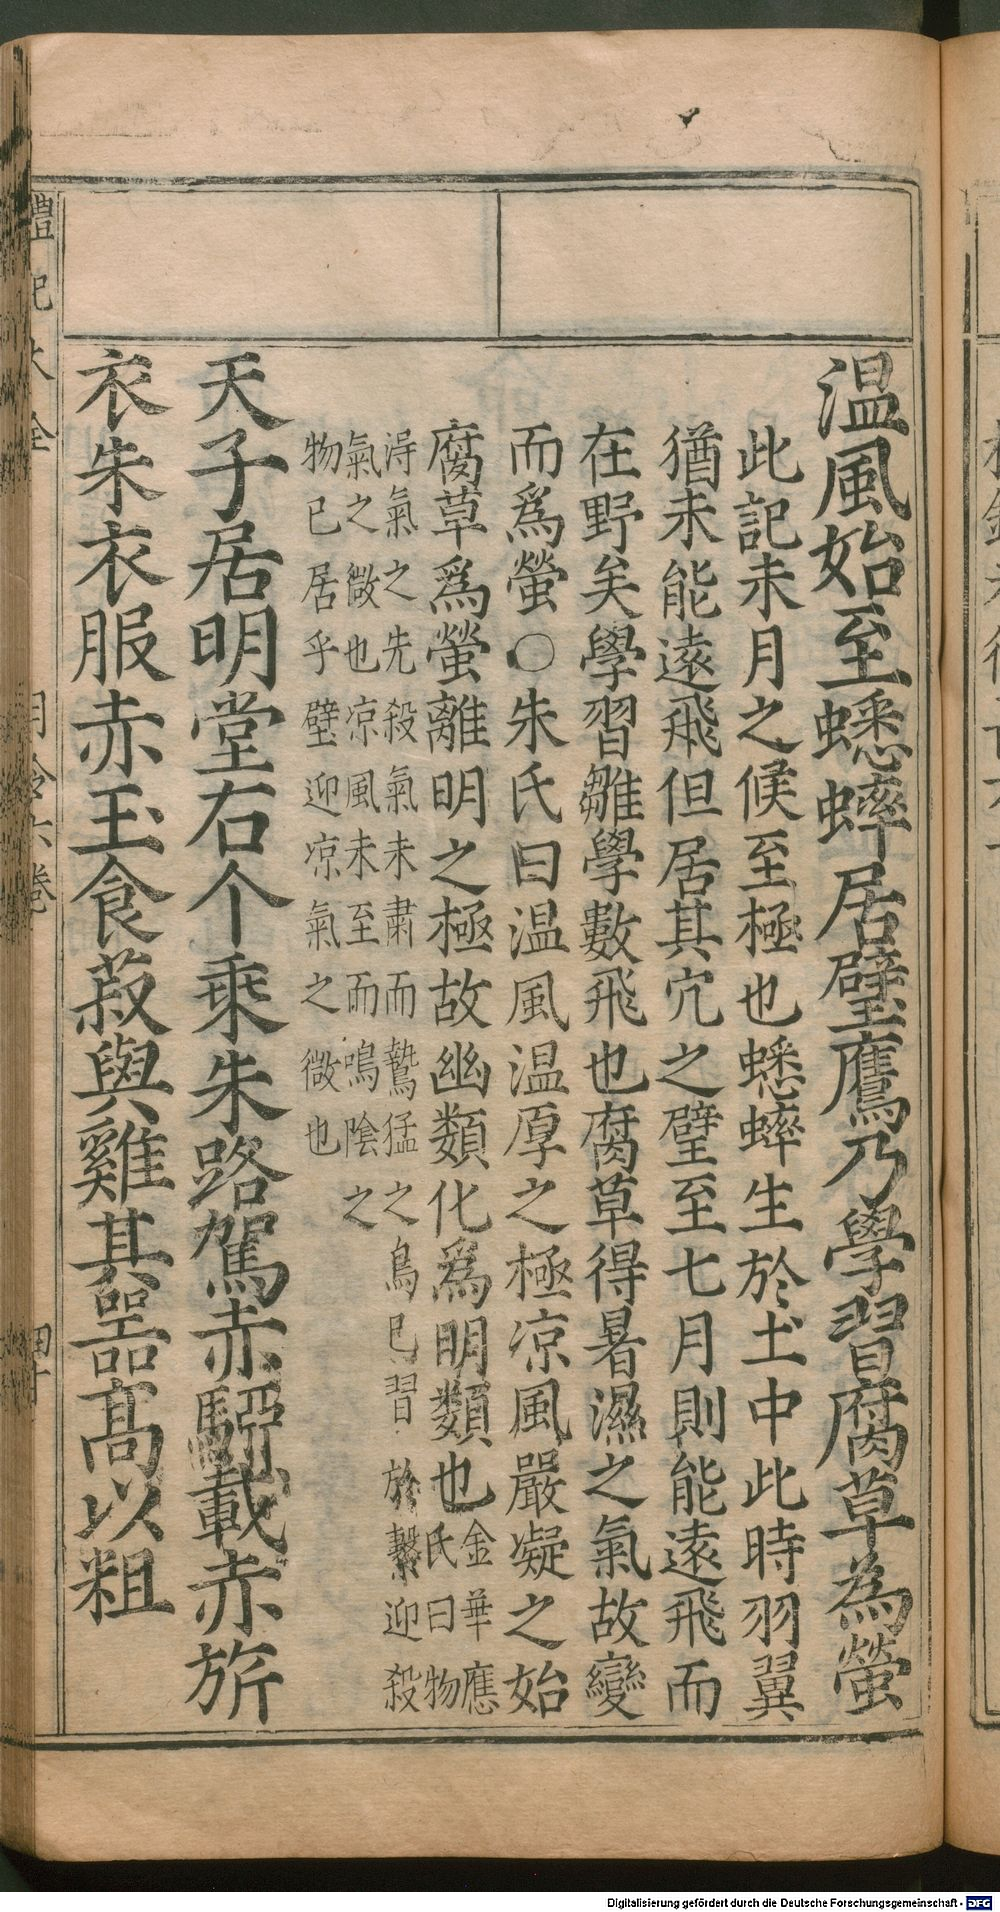 温風始至蟋蟀居壁鷹乃學習腐草為螢
此記未月之候至極也蟋蟀生於土中此時羽翼
猶未能遠飛但居其穴之壁至七月則能遠飛而
在野矣學習雛學數飛也腐草得暑濕之氣故變
而爲螢○朱氏曰温風温厚之極凉風嚴凝之始
腐草爲螢離明之極故幽類化爲明類也金華應
氏曰物
淂氣之先殺氣未肅而鷙猛之鳥已習於擊迎殺
氣之微也凉風未至而鳴陰之
物已居乎壁迎凉氣之微也
天子居明堂右个乘朱路駕赤駵載赤旂
衣朱衣服赤玉食菽與雞其器高以粗
禮記大全
月令六卷
Digitalisierung gefördert durch die Deutsche Forschungsgemeinschaft - DFG